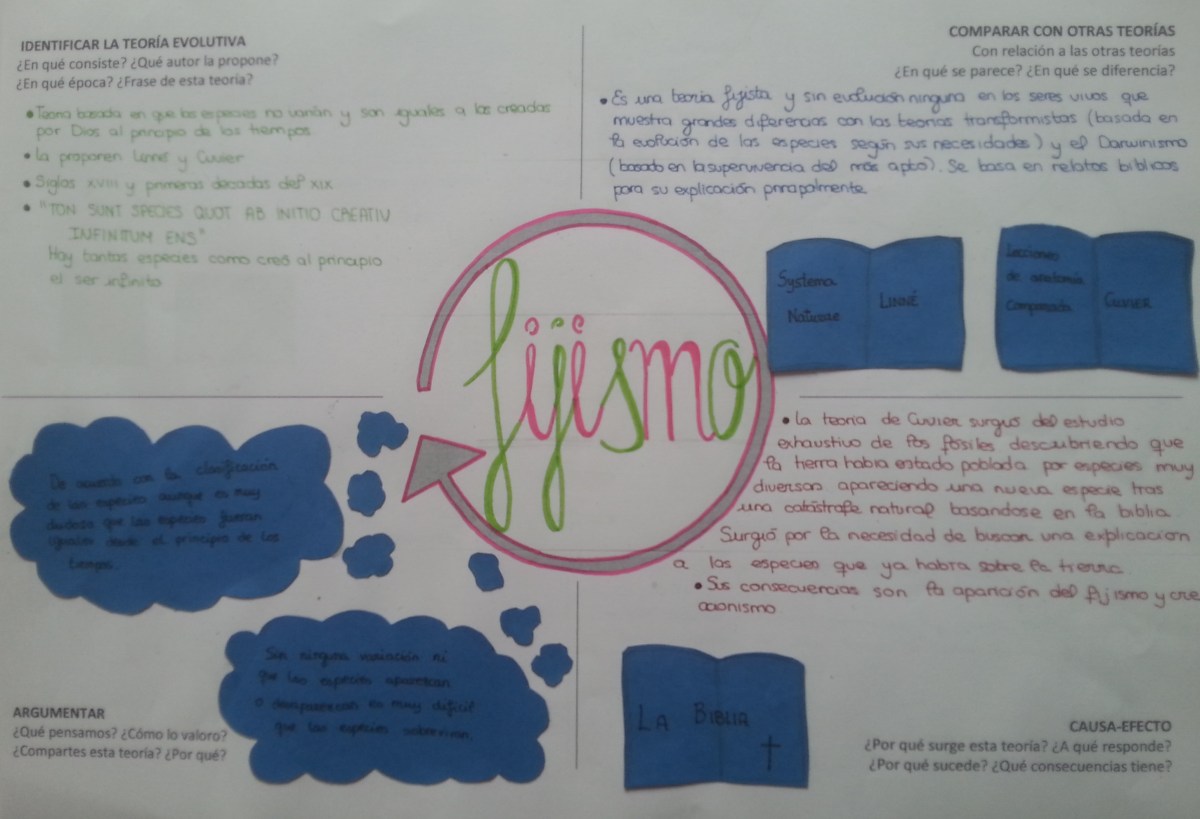 IDENTIFICAR LA TEORÍA EVOLUTIVA
¿En qué consiste? ¿Qué autor la propone?
¿En qué época? ¿Frase de esta teoría?
• Teoría basada en que las especies no varían y son iguales a las creadas
por Dios al principio de los tiempos
• La proponen Linné y Cuvier
• Siglos XVIII y primeras decadas del XIX
• "TON SUNT SPECIES QUOT AB INITIO CREATIV
INFINITUM ENS"
Hay tantas especies como creó al principio
el ser infinito
COMPARAR CON OTRAS TEORÍAS
Con relación a las otras teorías
¿En qué se parece? ¿En qué se diferencia?
• Es una teoria fijista y sin evolución ninguna en los seres vivos que
muestra grandes diferencias con las teorias transformistas (basada en
la evolución de las especies según sus necesidades) y el Darwinismo
(basado en la supervivencia del más apto). Se basa en relatos bíblicos
para su explicación principalmente.
Systema
Naturae
LINNÉ
Lecciones
de anatomía
Comparada
CUVIER
fijismo
De acuerdo con la clasificación
de las especies aunque es muy
dudoso que las especies fueran
iguales desde el principio de los
tiempos.
Sin ninguna variación ni
que las especies aparezcan
o desaparezcan es muy difícil
que las especies sobrevivan.
ARGUMENTAR
¿Qué pensamos? ¿Cómo lo valoro?
¿Compartes esta teoría? ¿Por qué?
• La teoria de Cuvier surgió del estudio
exhaustivo de los fósiles descubriendo que
la tierra habia estado poblada por especies muy
diversas apareciendo una nueva especie tras
una catástrofe natural basandose en la biblia
Surgió por la necesidad de buscar una explicacion
a las especies que ya habia sobre la tierra
• Sus consecuencias son la aparición del fijismo y cre
acionismo
LA BIBLIA
CAUSA-EFECTO
¿Por qué surge esta teoría? ¿A qué responde?
¿Por qué sucede? ¿Qué consecuencias tiene?